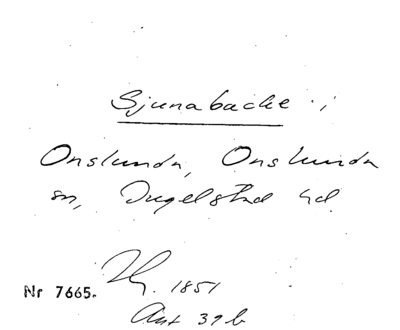 Sjunabacke i
Onslunda, Onslunda
sn, Ingelstad hd
Hg. 1851
Nr 7665.
Ant 39 b